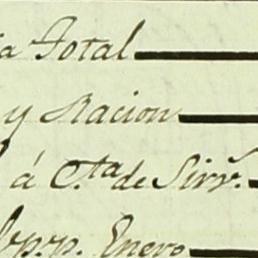 ia Total
y Racion
á C.ta de Sirv.
p.p. Enero